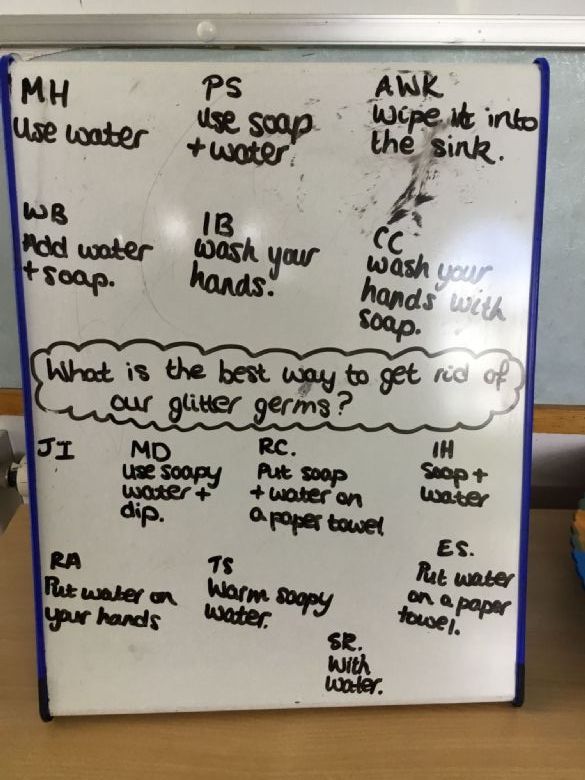 MH
Use water
PS
use soap
+ water
AWK
Wipe it into
the sink.
WB
Add water
+ soap.
IB
wash your
hands.
CC
wash your
hands with
soap.
What is the best way to get rid of
our glitter germs?
JI
MD
use soapy
water +
dip.
RC.
Put soap
+ water on
a paper towel
IH
Soap +
water
RA
Put water on
your hands
TS
Warm soapy
water.
ES.
Put water
on a paper
towel.
SR.
With
water.